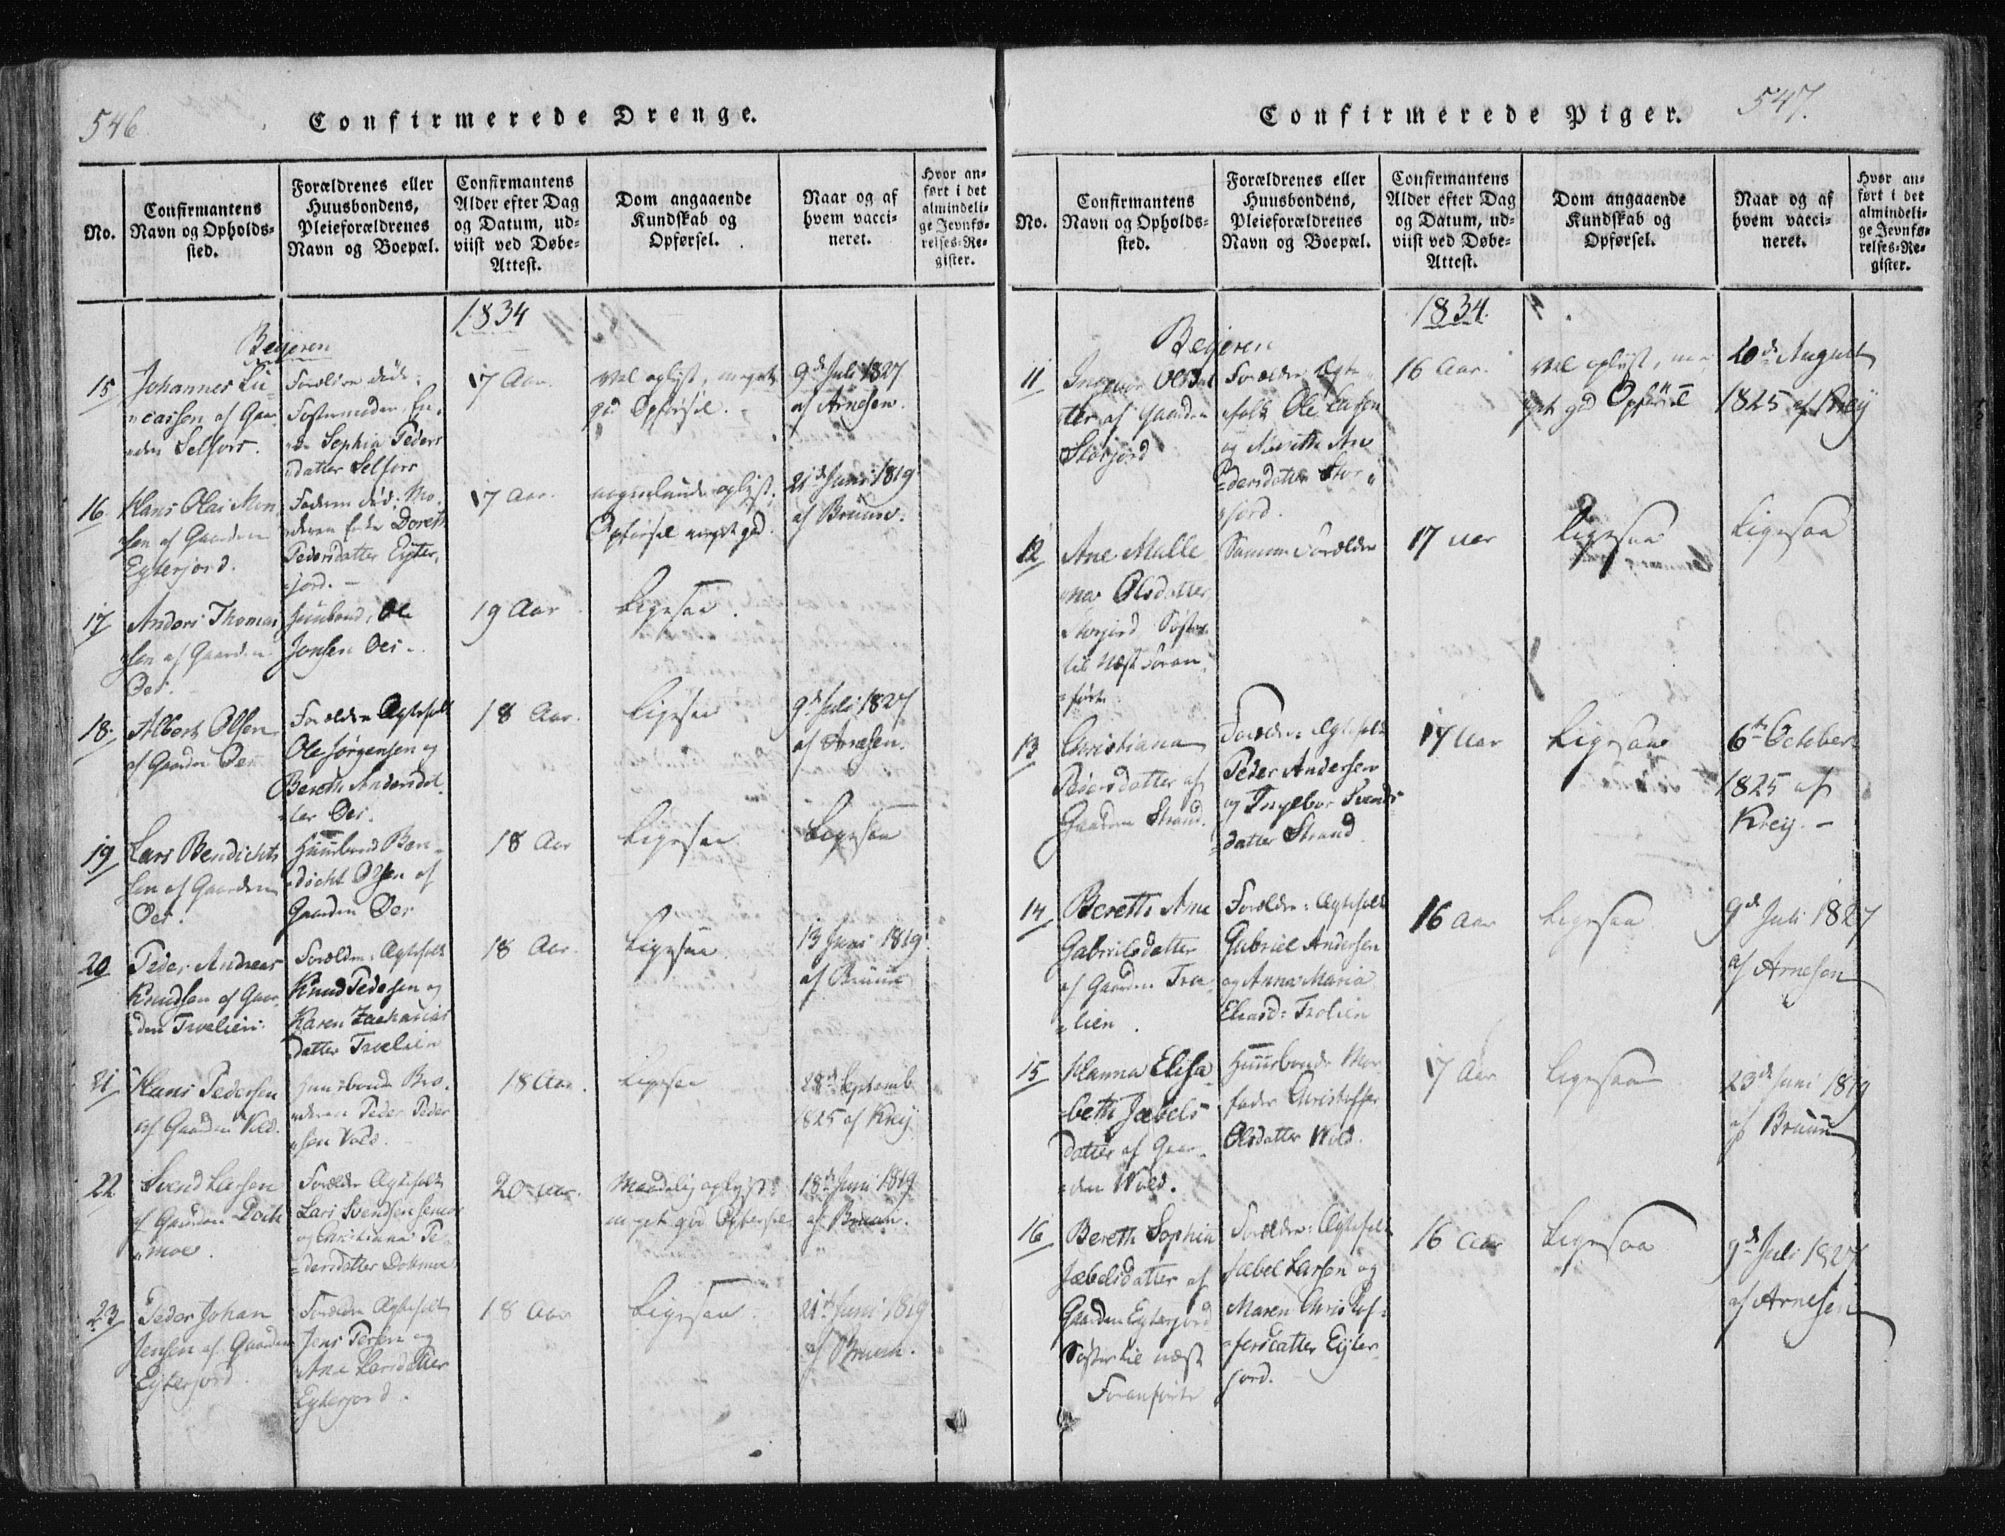 546
Confirmerede Drenge.
No.
Confirmantens
Navn og Opholds-
sted.
Forældrenes eller
Huusbondens,
Pleieforældrenes
Navn og Boepæl.
Confirmantens
Alder efter Dag
og Datum, ud-
viist ved Døbe-
Attest.
Dom angaaende
Kundskab og
Opførsel.
Naar og af
hvem vacci-
neret.
Hvor an-
ført i det
almindeli-
ge Jevnfø-
relses-Re-
gister.
1834
Beyeren
15
Johannes Lu-
cassen af Gaar-
den Selfors.
Forældre døde.
Fostermoder, En-
ke Sophia Peders
datter Selfors
17 Aar.
Vel oplyst, meget
god Opførsel.
9de Juli 1827
af Arnesen.
16
Hans Olai Mon
sen af Gaarden
Eyterjord.
Faderen død. Mo-
deren Enke Doreth
Pedersdatter Eyter-
jord. -
17 Aar.
nogenlunde oplyst.
Opførsel meget god.
21de Juni 1819
af Bruun.
17
Anders Thomas
sen af Gaarden
Oes.
Huusbond, Ole
Jonsen Oes.
19 Aar
Ligesaa.
18.
Albert Olsen
af Gaarden Oes
Forældre Ægtefolk
Ole Jørgensen og
Bereth Andersdat-
ter Oes.
18 Aar.
Ligesaa
9de Juli 1827
af Arnesen.
19
Lars Bendichts
sen af Gaarden
Oes.
Huusbond Ben-
dicht Olsen af
Gaarden Oes
18 Aar
Ligesaa
Ligesaa
20
Peder Andreas
Knudsen af Gaar-
den Troelien.
Forældre: Ægtefolk
Knud Pedersen og
Karen Zacharias
datter Troelien
18 Aar.
Ligesaa.
13 Juni 1819.
af Bruun
21
Hans Pedersen
af Gaarden Vold.
Huusbonde Bro-
deren Peder Peder
sen Vold.
18 Aar.
Ligesaa
28de Septemb
1825 af Kreij
22
Svend Larsen
af Gaarden Dok
moe.
Forældre Ægtefolk
Lars Svendsen
og Christiana Pe-
dersdatter Dokmoe.
20 Aar.
Maadelig oplyst.
meget god Opførsel.
18de Juni 1819
af Bruun.
23
Peder Johan
Jensen af Gaarden
Eyterjord.
Forældre Ægtefolk
Jens Peders og
Ane Larsdatter
Eyterjord.
18 Aar
Ligesaa.
21de Juni 1819
af Bruun.
547.
Confirmerede Piger.
No.
Confirmantens
Navn og Opholds-
sted.
Forældrenes eller
Huusbondens,
Pleieforældrenes
Navn og Boepæl.
Confirmantens
Alder efter Dag
og Datum, ud-
viist ved Døbe-
Attest.
Dom angaaende
Kundskab og
Opførsel.
Naar og af
hvem vacci-
neret.
Hvor an-
ført i det
almindeli-
ge Jevnfø-
relses-Re-
gister.
1834.
Beyeren
11
Ingebor Olsdat
ter af Gaarden
Storjord
Forældre: Ægte-
folk Ole Larsen
og An-
dersdatter Stor-
jord.
16 Aar.
Vel oplyst, me-
get god Opførsel
20de August
1825 af Kreij
12
Ane Malle
na Olsdatter
Storjord Søster
til Næst Foran-
førte
Samme Forældre
17 Aar
Ligesaa
Ligesaa
13
Christiana
Pedersdatter af
Gaarden Strand.
Forældre: Ægtefolk
Peder Andersen
og Ingebor Svends
datter Strand.
17 Aar
Ligesaa
6te October
1825 af
Kreij. -
14
Bereth Ane
Gabrielsdatter
af Gaarden Troe-
lien.
Forældre: Ægtefolk
Gabriel Andersen
og Anna Maria
Eliasd: Trolien
16 Aar
Ligesaa
9de Juli 1827
af Arnesen
15
Hanna Elisa-
beth Jæbels
datter af Gaar-
den Wold.
Huusbonde Mor-
fader Christoffer
Olsdatter Wold.
17 Aar
Ligesaa
23de Juni 1819
af Bruun
16
Bereth Sophia
Jæbelsdatter af
Gaarden Eyterjord
Søster til næst
Foranførte
Forældre: Ægtefolk
Jæbel Larsen og
Maren Christof-
fersdatter Eyter-
jord.
16 Aar
Ligesaa
9de Juli 1827
af Arnesen